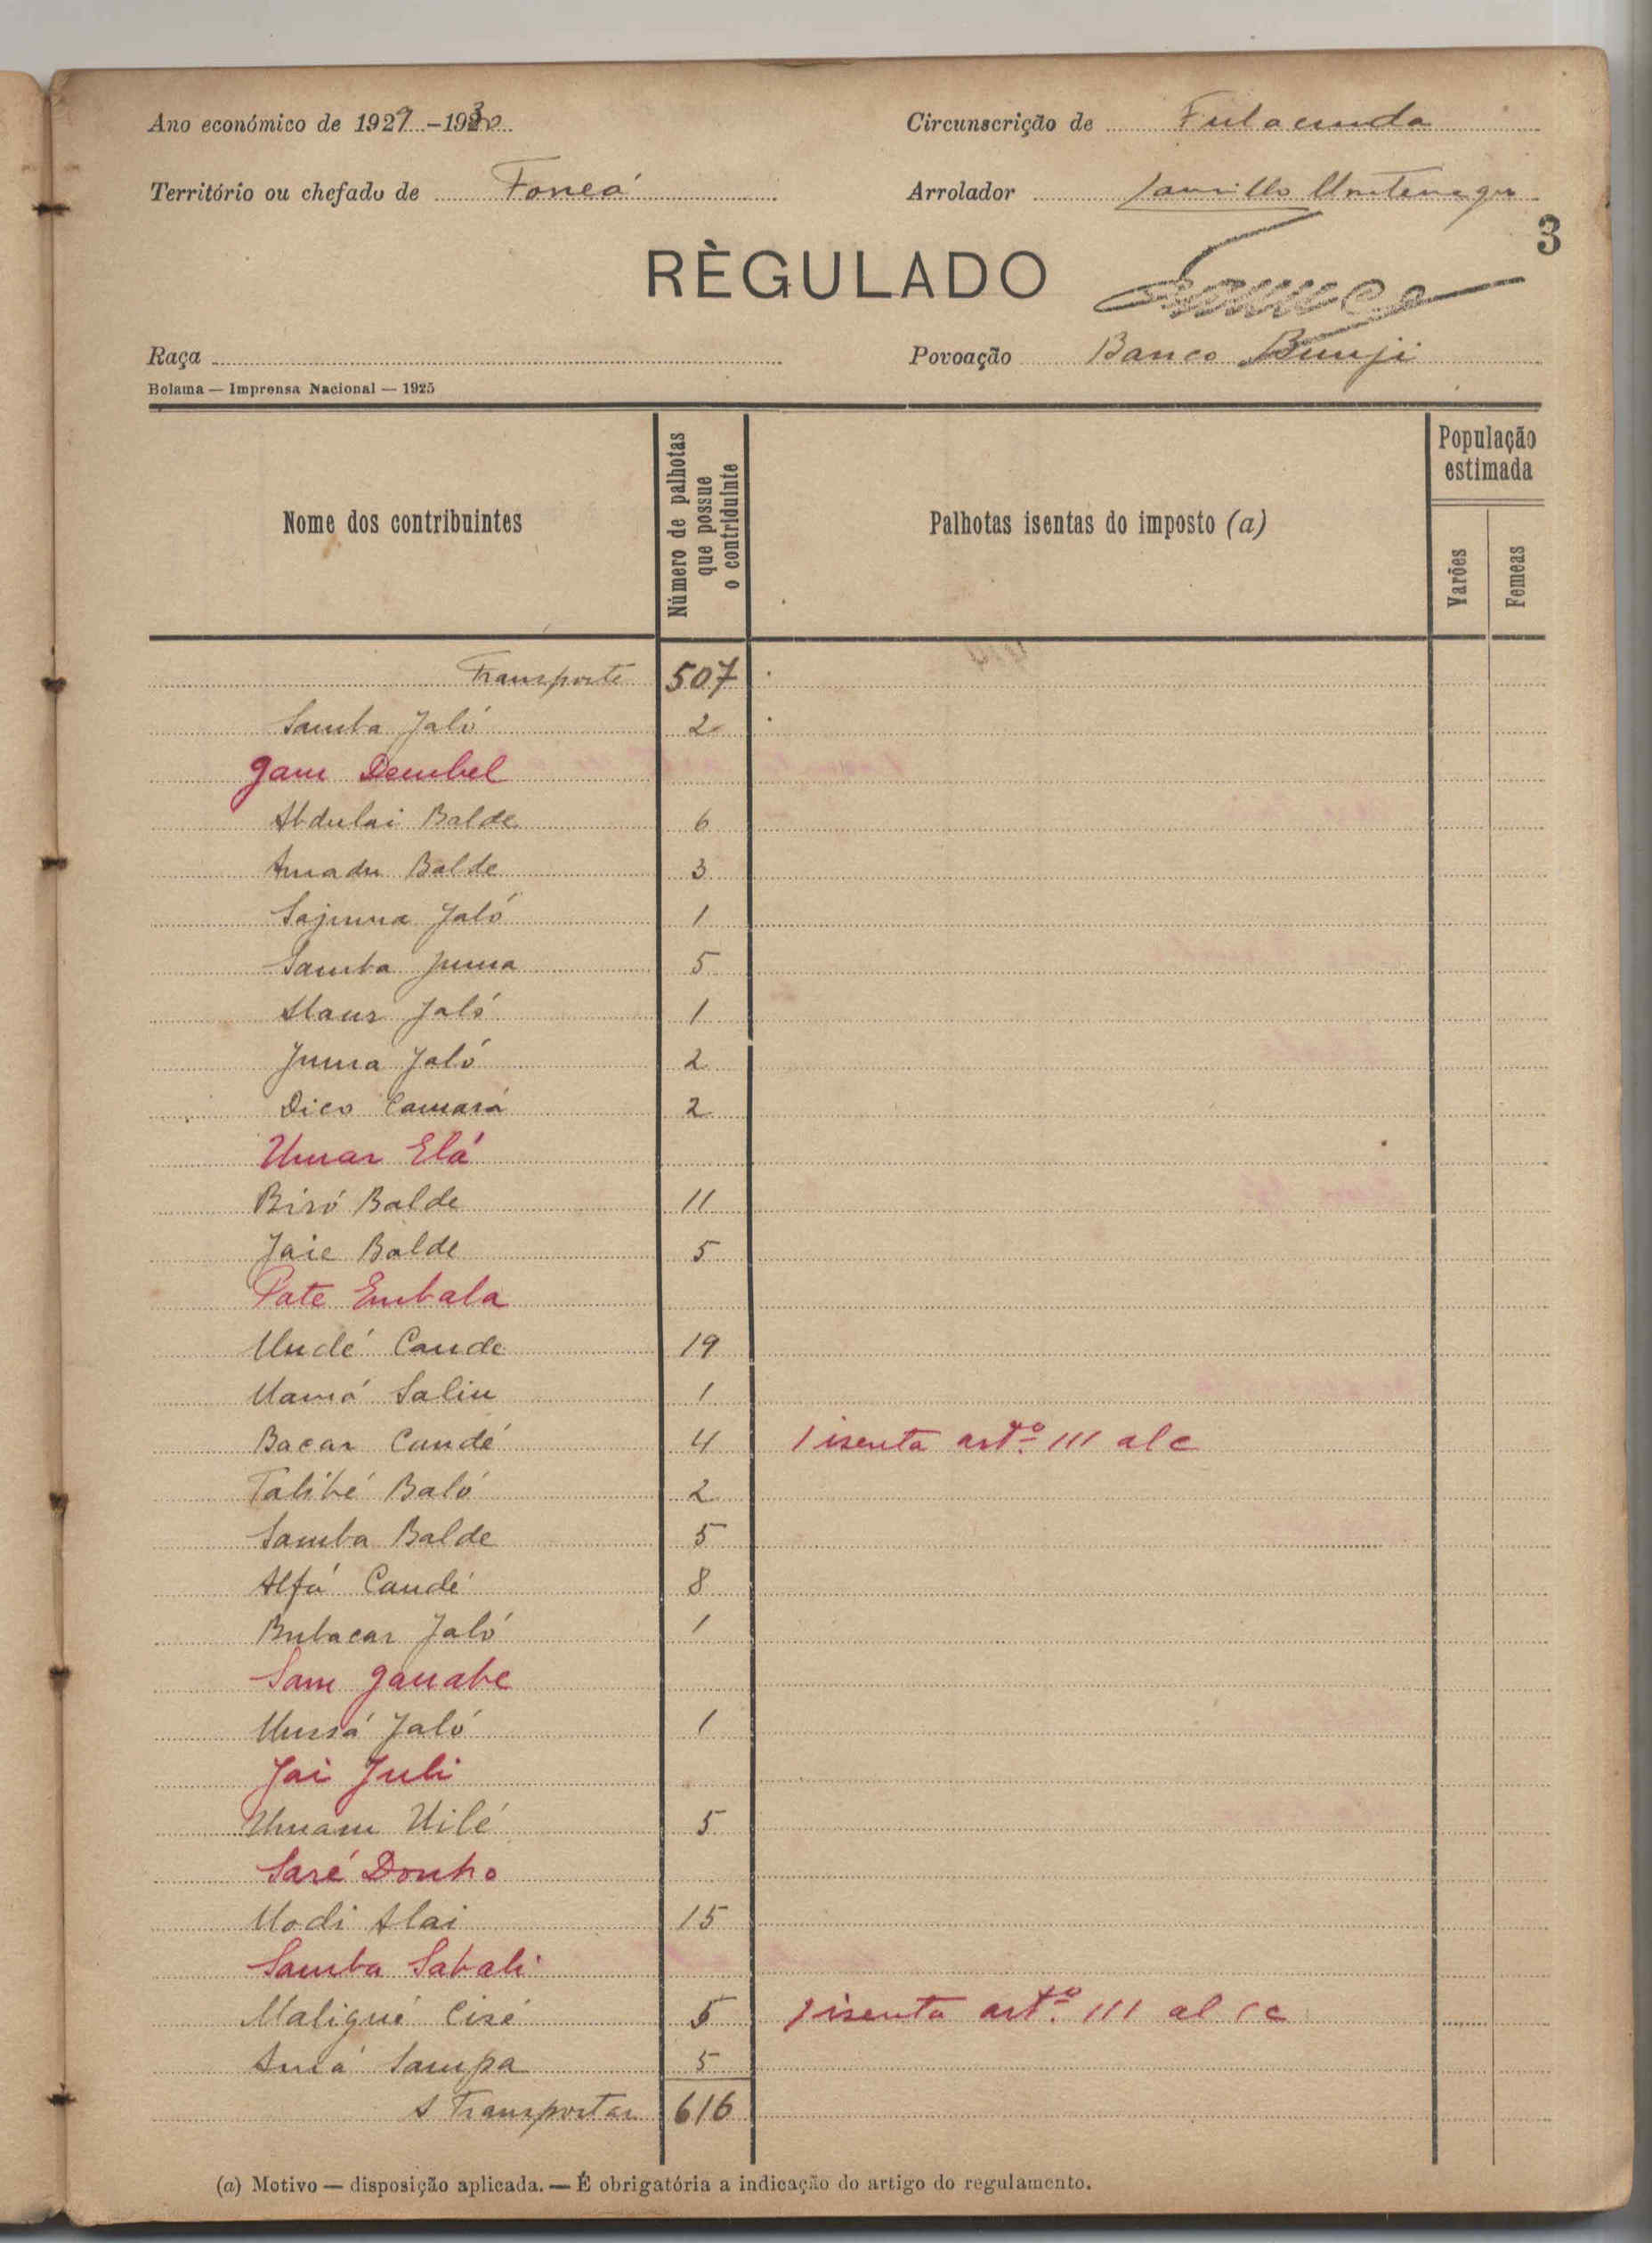 Ano económico de 1929-1930
Circunscrição de Fulacunda
Território ou chefado de Foneá
Arrolador
3
RÈGULADO
Raça
Povoação Banco Bunji
Bolama — Imprensa Nacional — 1925
Nome dos contribuintes
Número de palhotas que possue o contriduinte
Palhotas isentas do imposto (a)
População estimada
Varões
Femeas
Transporte 507
Samba Jaló 2
Gam Dembel
Abdulai Balde 6
Amadu Balde 3
Sajuma Jaló 1
Samba Juma 5
Jaló 1
Juma Jaló 2
Dico Camará 2
Umar Elá
Biró Balde 11
Jaie Balde 5
Pate Embala
Undé Cande 19
Mamá Saliu 1
Bacar Candé 4 1 isenta artº 111 al c
Talibé Baló 2
Samba Balde 5
Alfá Candé 8
Bubacar Jaló 1
Sam Ganabe
Mussá Jaló 1
Jai Juli
Umaru Uilé 5
Saré Donho
Modi Alai 15
Samba Sabali
Maliqué Cisé 5 1 isenta artº 111 al c
Amá Sampa 5
A Transportar 616
(a) Motivo — disposição aplicada. — É obrigatória a indicação do artigo do regulamento.